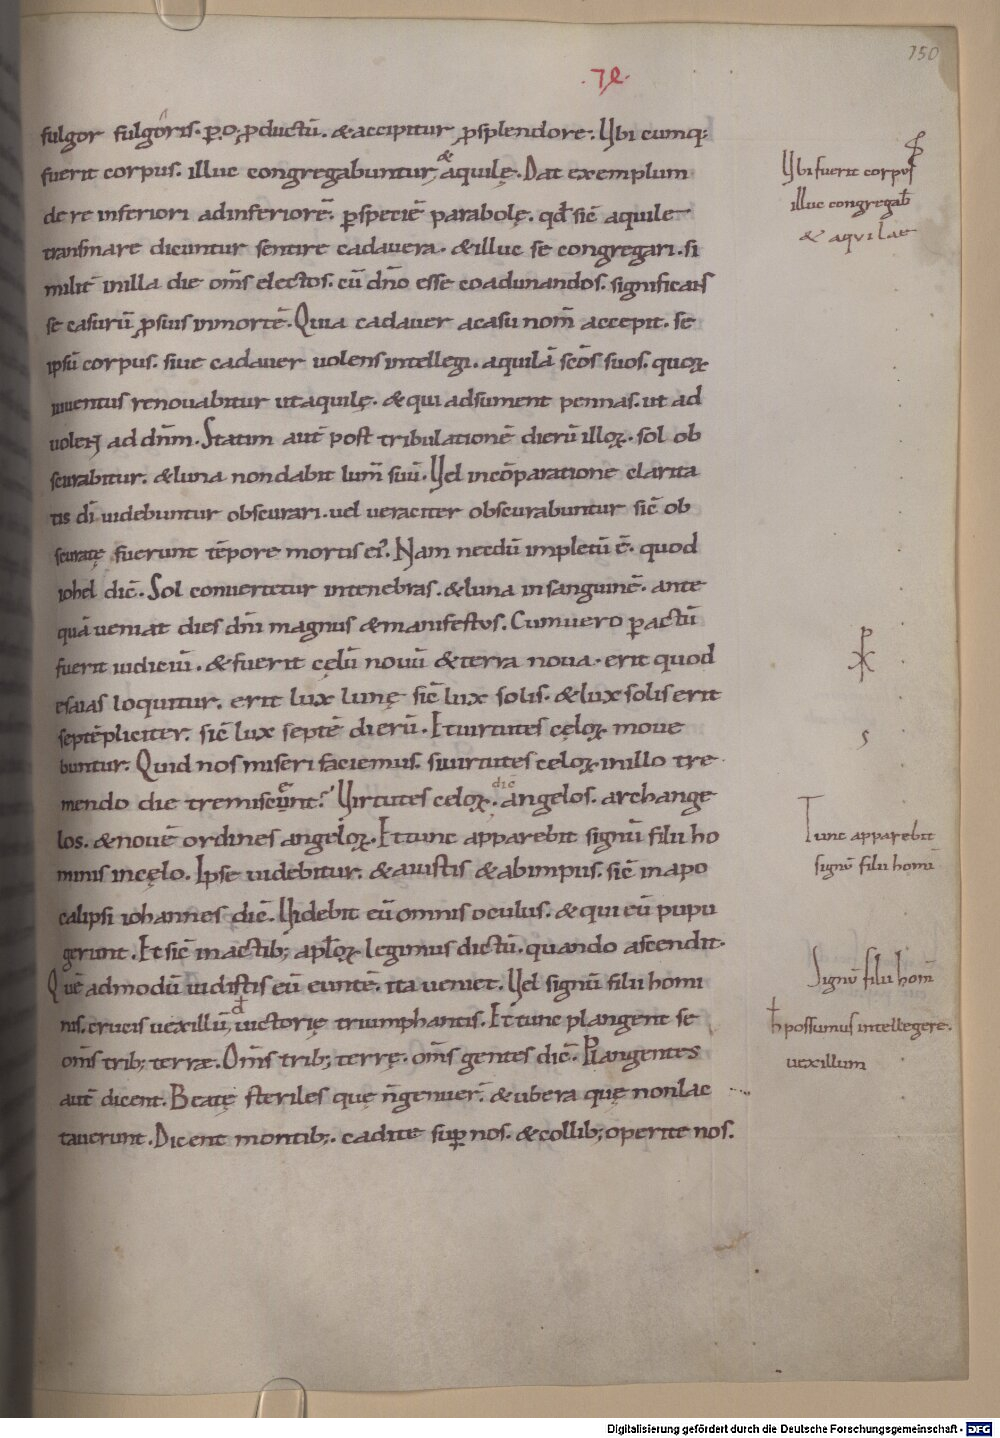 150
.72.
fulgor fulgoris. p̲.o. p̲ductū. &accipitur p̲splendore. Ubi cumq;
fuerit corpus. illuc congregabuntur & aquilę. Dat exemplum
de re inferiori adinferiorē. p̲speciē parabolę. qđ sic̄ aquile
transmare dicuntur sentire cadauera. &illuc se congregari. si
milit̄ inilla die om̄s electos. cū dn̄o esse coadunandos. significans
se casurū p̲sius inmortē. Quia cadauer acasu nom̄ accepit. se
ipsū corpus. siue cadauer uolens intellegi. aquilā sc̄os suos. quoꝝ
iuuentus renouabitur utaquilę. & qui adsument pennas. ut ad
uolent ad dn̄m. Statim aut̄ post tribulationē dierū illoꝝ. sol ob
scurabitur. &luna nondabit lum̄ suū. Vel incōparatione clarita
tis dī uidebuntur obscurari. uel ueraciter obscurabuntur sic̄ ob
scuratę fuerunt tēpore mortis ei'. Nam necdū impletū ē. quod
iohel dic̄. Sol conuertetur intenebras. &luna insanguinē. ante
quā ueniat dies dn̄i magnus &manifestus. Cumuero p̲actū
fuerit iudiciū. & fuerit cęlū nouū &terra noua. erit quod
esaias loquitur. erit lux lunę sic̄ lux solis. &lux solis erit
septēpliciter. sic̄ lux septē dierū. Etuirtutes cęloꝝ moue
buntur. Quid nos miseri faciemus. siuirtutes celoꝝ inillo tre
mendo die tremiscunt? Virtutes celoꝝ. dic̄ angelos. archange
los. &nouē ordines angeloꝝ. Ettunc apparebit signū filii ho
minis incęlo. Ipse uidebitur. & aiustis &abimpiis. sic̄ inapo
calipsi iohannes dic̄. Uidebit eū omnis oculus. &qui eū pupu
gerunt. Et sic̄ inactib; apl̄oꝝ legimus dictū. quando ascendit.
Quē admodū uidistis eū euntē. ita ueniet. Vel signū filii homi
nis. crucis uexillū, uictorię triumphantis. Ettunc plangent se
om̄s trib; terræ. Om̄s trib; terrę. om̄s gentes dic̄. Plangentes
aut̄ dicent. Beatę steriles quę n̄genuer̄. &ubera quę nonlac
tauerunt. Dicent montib;. cadite sup̲ nos. &collib; operite nos.
Ubi fuerit corpus
illuc congregab̄
& aquilae
Tunc apparebit
signū filii homī
Signū filii hom̄
possumus intellegere.
uexillum
Digitalisierung gefördert durch die Deutsche Forschungsgemeinschaft - DFG